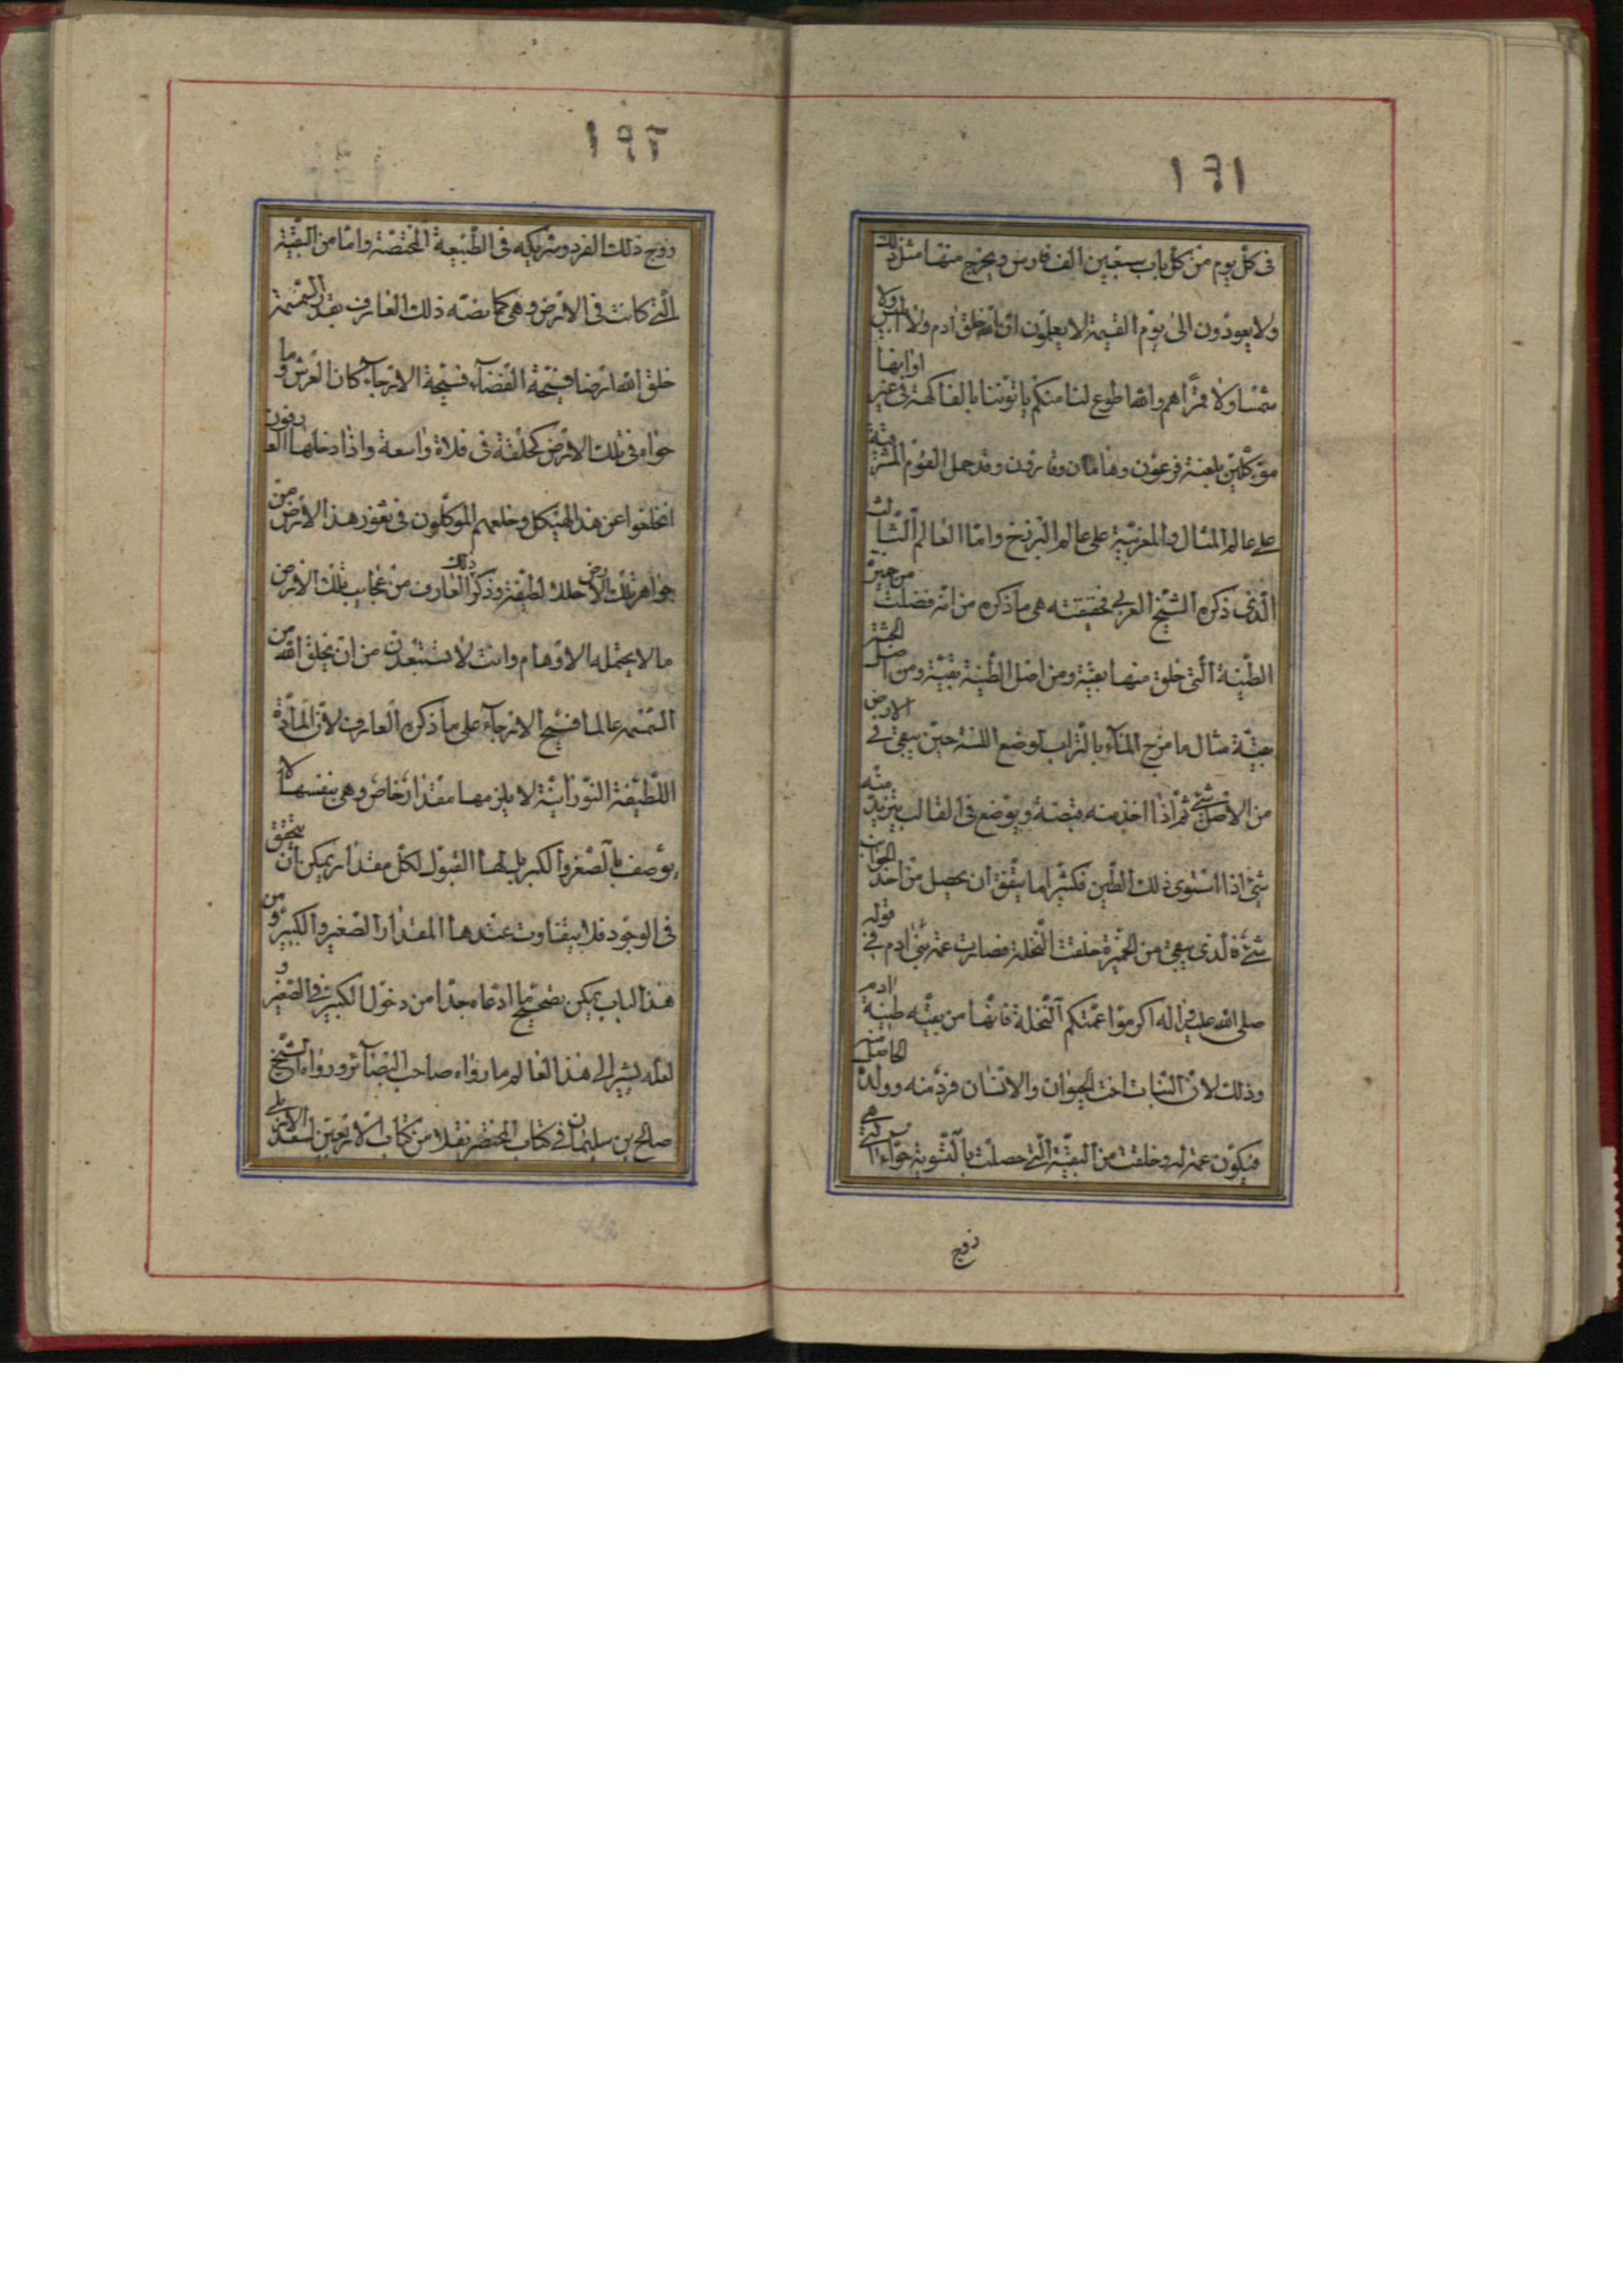 ١٩١
فى كل يوم من كل باب سبعين الف فارس ويخرج منها مثل ذلك
ولا يعودون الى يوم القيمة لا يعلمون ان الله خلق ادم ولا ابليس ولا
شمسا ولا قمرا هم والله اطوع لنا منكم ياتوننا بالفاكهة فى غير اوانها
موكلين بلعنة فرعون وهامان وقارون وقد حمل القوم المشرقية
على عالم المثال والمغربية على عالم البرزخ واما العالم الثالث
الذى ذكره الشيخ العربى فحقيقته هى ما ذكره من انه فضلت من خميرة
الطينة التى خلق منها بقية ومن اصل الطينة بقية ومن اصل
بقية مثال ما مزج الماء بالتراب لوضع اللبنة حين يبقى فى الارض
من الاصل شئ ثم اذا اخذ منه قبضة ويوضع فى القالب يزيد منه
شئ اذا استوى ذلك الطين فكثيرا ما يتفق ان يحصل من احد الجوانب
شئ فالذى بقى من الخميرة خلقت النخلة فصارت عمة بنى ادم فى قوله
صلى الله عليه واله اكرموا عمتكم النخلة فانها من بقية طينة ادم
وذلك لان النبات اخت الحيوان والانسان فرد منه وولد الحاصل منه
فيكون عمة له وخلقت من البقية التى حصلت بالتسوية حواء التى هى
زوج
١٩٢
زوج ذلك الفرد وشريكه فى الطبيعة المختصة واما من البقية
التى كانت فى الارض وهى كما نصه ذلك العارف بقدر السمسمة
خلق الله ارضا فسيحة الفضاء فسيحة الارجاء كان العرش وما
حواه فى تلك الارض كحلقة فى فلاة واسعة واذا دخلها العارفون
انخلعوا عن هذا الهيكل وخلعهم الموكلون فى ثغور هذا الارض من
جواهر تلك الارض حللا لطيفة وذكر ذلك العارف من عجايب تلك الارض
ما لا يحتمله الاوهام وانت لا تستبعدن من ان يخلق الله من
السمسمة عالما فسيح الارجاء على ما ذكره العارف لان المادة
اللطيفة النورانية لا يلزمها مقدار خاص وهى بنفسها لا
يوصف بالصغر والكبر بل لها القبول لكل مقدار يمكن ان يتحقق
فى الوجود فلا يتفاوت عندها المقدار الصغير والكبير ومن
هذا الباب يمكن تصحيح ما ادعاه جدا من دخول الكبير فى الصغير و
لعله يشير الى هذا العالم ما رواه صاحب البصائر ورواه الشيخ
صالح بن سليمان فى كتاب المختصر نقلا من كتاب الاربعين لسعد الاربلى